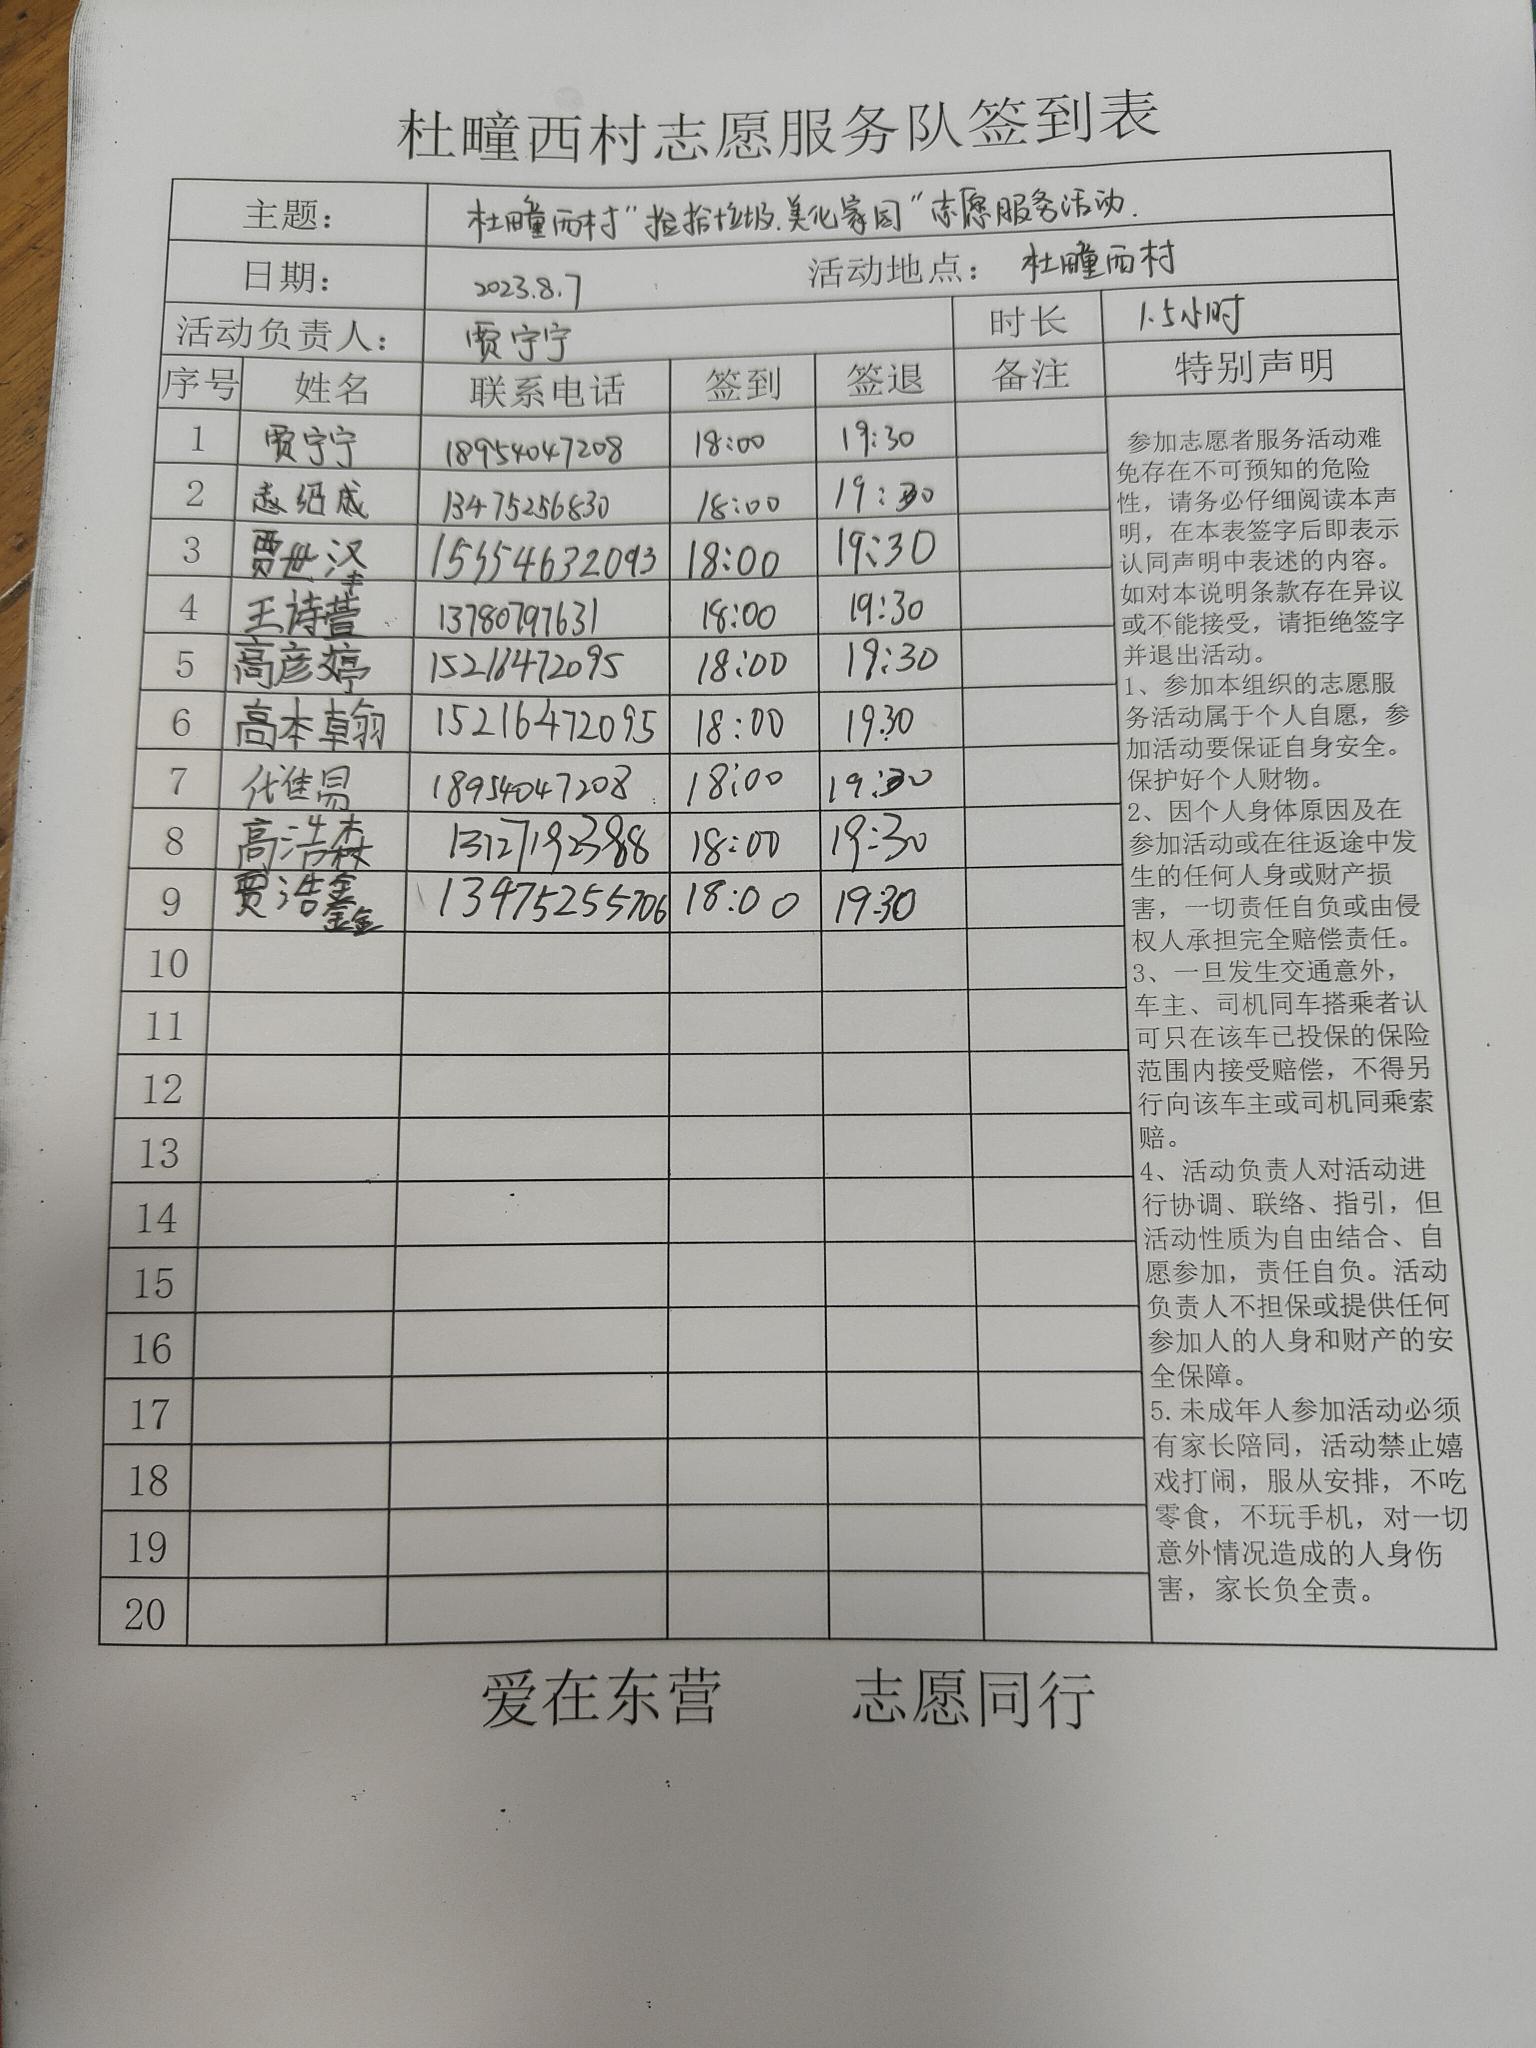 杜疃西村志愿服务队签到表
主题： 杜疃西村“捡拾垃圾.美化家园”志愿服务活动.
日期： 2023.8.7 活动地点： 杜疃西村
活动负责人： 贾宁宁 时长 1.5小时
序号 姓名 联系电话 签到 签退 备注 特别声明
1 贾宁宁 18954047208 18:00 19:30
2 赵绍成 13475256830 18:00 19:30
3 贾世泽 15554632093 18:00 19:30
4 王诗萱 13780797631 18:00 19:30
5 高彦婷 15216472095 18:00 19:30
6 高本卓翰 15216472095 18:00 19:30
7 代佳昂 18954047208 18:00 19:30
8 高浩森 13127192388 18:00 19:30
9 贾浩鑫 13475255706 18:00 19:30
10
11
12
13
14
15
16
17
18
19
20
参加志愿者服务活动难
免存在不可预知的危险
性，请务必仔细阅读本声
明，在本表签字后即表示
认同声明中表述的内容。
如对本说明条款存在异议
或不能接受，请拒绝签字
并退出活动。
1、参加本组织的志愿服
务活动属于个人自愿，参
加活动要保证自身安全。
保护好个人财物。
2、因个人身体原因及在
参加活动或在往返途中发
生的任何人身或财产损
害，一切责任自负或由侵
权人承担完全赔偿责任。
3、一旦发生交通意外，
车主、司机同车搭乘者认
可只在该车已投保的保险
范围内接受赔偿，不得另
行向该车主或司机同乘索
赔。
4、活动负责人对活动进
行协调、联络、指引，但
活动性质为自由结合、自
愿参加，责任自负。活动
负责人不担保或提供任何
参加人的人身和财产的安
全保障。
5.未成年人参加活动必须
有家长陪同，活动禁止嬉
戏打闹，服从安排，不吃
零食，不玩手机，对一切
意外情况造成的人身伤
害，家长负全责。
爱在东营 志愿同行